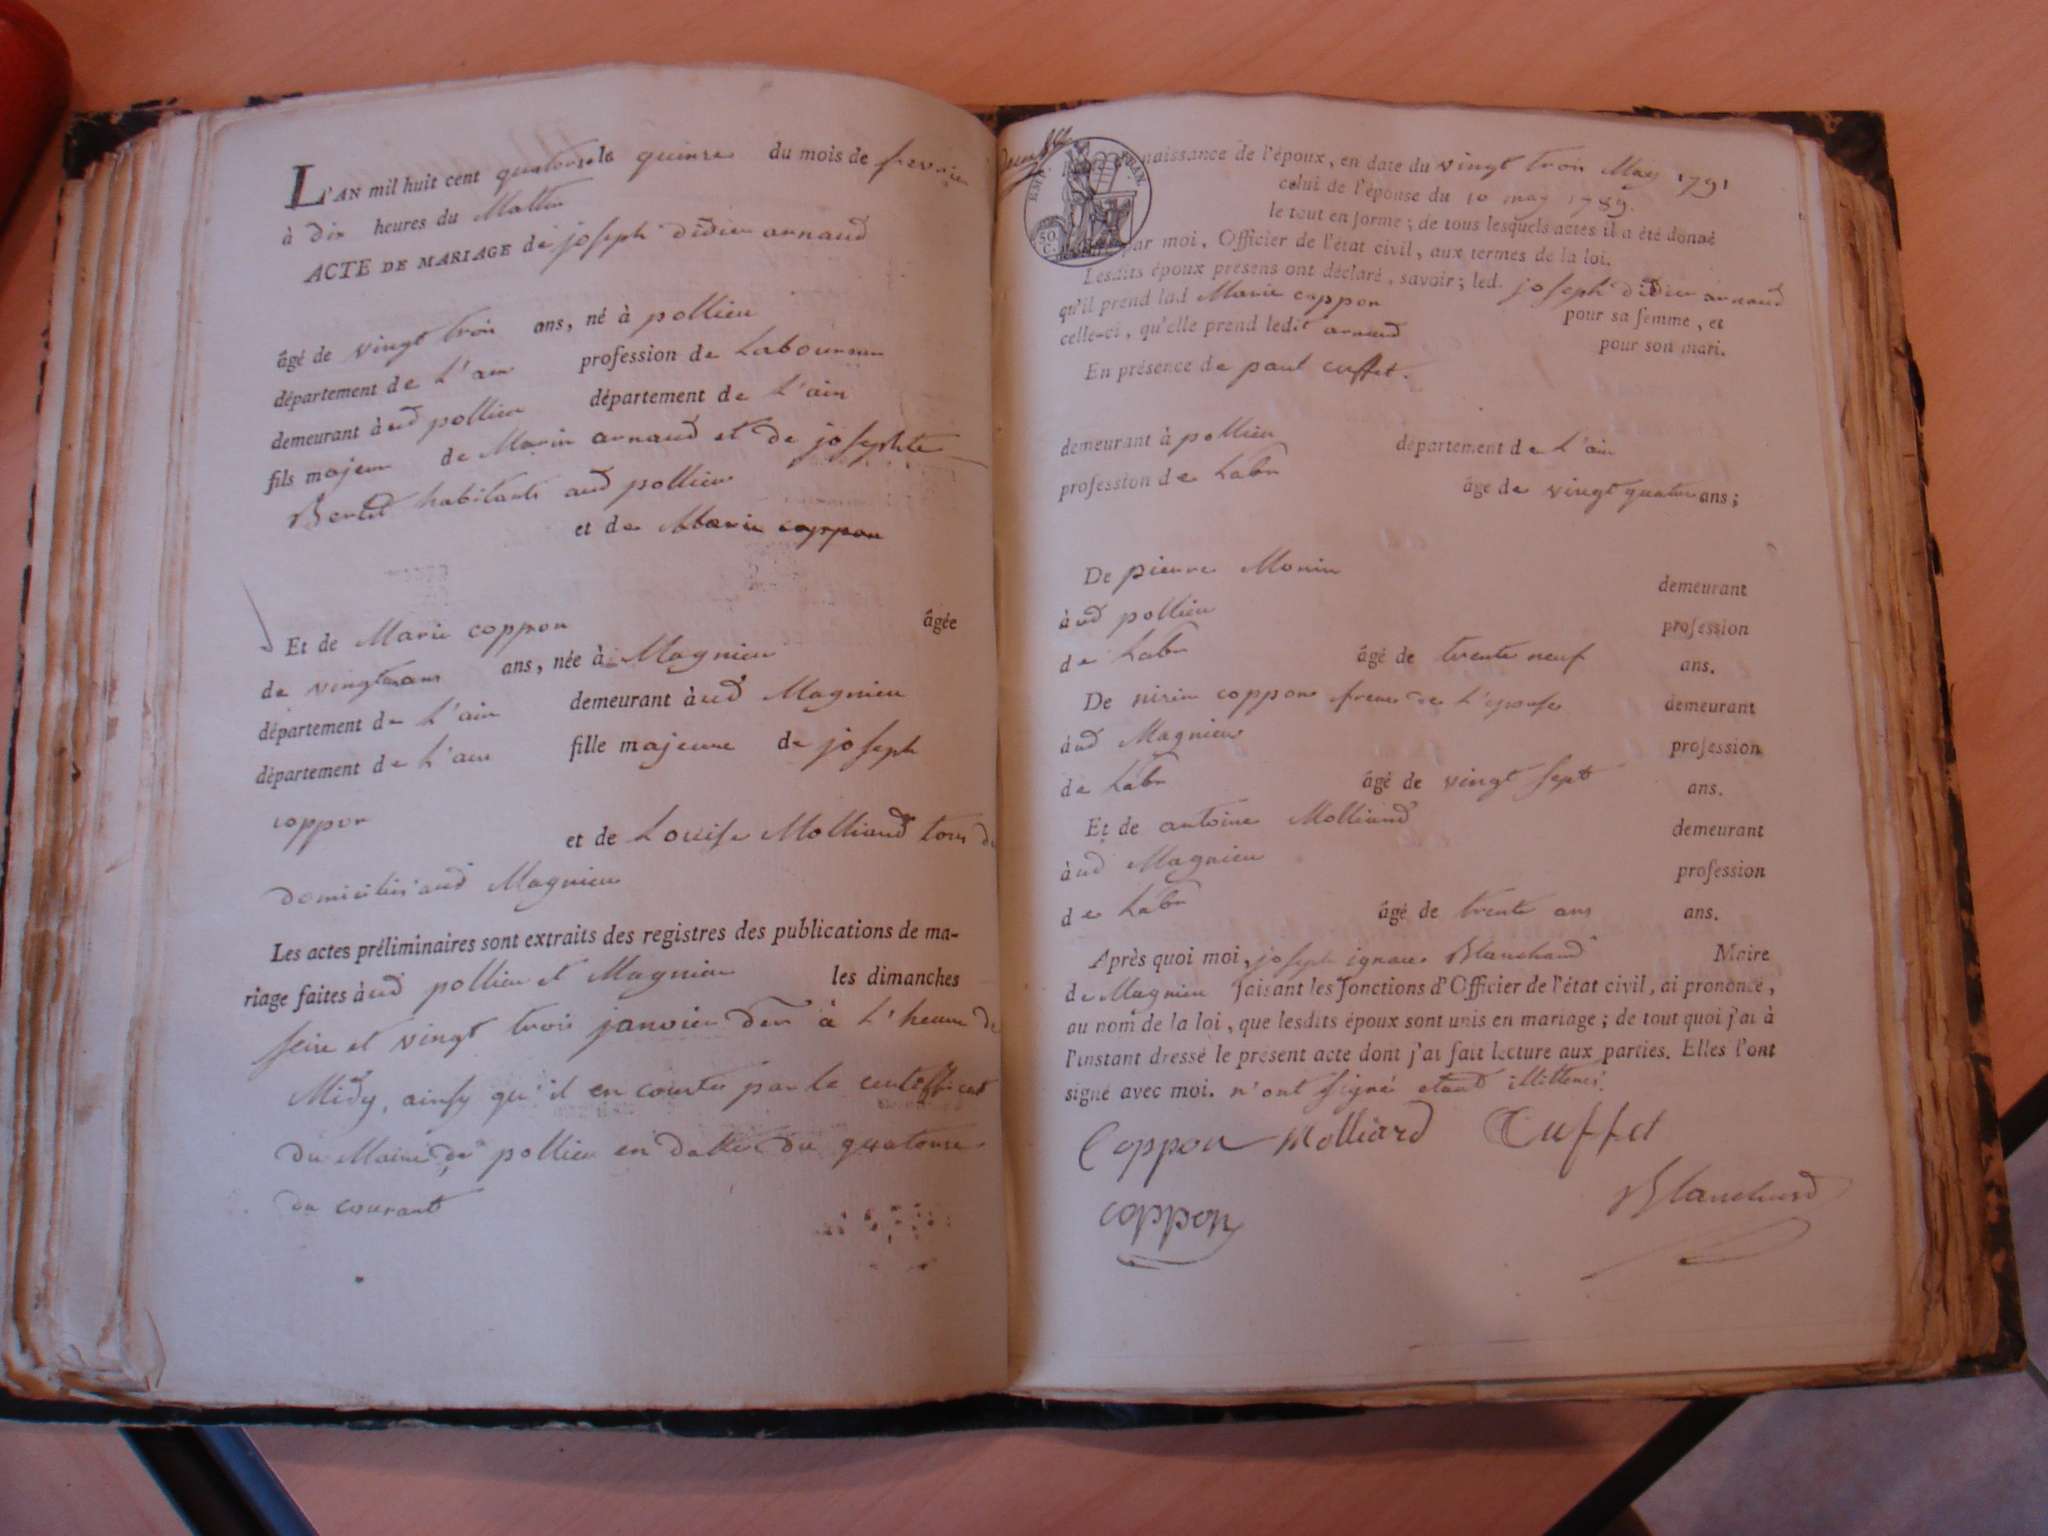 L'AN mil huit cent quatorze le quinze du mois de fevrier
à dix heures du Mattin
ACTE DE MARIAGE de joseph didier arnaud
âgé de vingt trois ans, né à pollieu
département de L'ain profession de Laboureur
demeurant à ud pollieu département de L'ain
fils majeur de Marin arnaud et de josephte
Bertet habitants aud pollieu
et de Marie coppon
Et de Marie coppon âgée
de ans, née à Magnieu
département de L'ain demeurant à ud Magnieu
département de L'ain fille majeure de joseph
coppon
et de Louise Molliand tous
domiciliés aud Magnieu
Les actes préliminaires sont extraits des registres des publications de ma-
riage faites à ud pollieu et Magnieu les dimanches
seize et vingt trois janvier der à L'heure de
Midy, ainsy qu'il en par le certifficat
du Maire de pollieu en datte du quatorze
du courant
EMP. FRAN.
50 C.
naissance de l'époux, en date du vingt trois 1791
celui de l'épouse du 10 may 1789.
le tout en forme; de tous lesquels actes il a été donné
par moi, Officier de l'état civil, aux termes de la loi.
Lesdits époux présens ont déclaré, savoir; led. joseph didier arnaud
qu'il prend lad Marie coppon pour sa femme, et
celle-ci, qu'elle prend ledit arnaud pour son mari.
En présence de paul cuffet.
demeurant à pollieu département de L'ain
profession de Labr âgé de vingt quatre ans;
De pierre Monin demeurant
à ud pollieu profession
de Labr âgé de trente neuf ans.
De coppon frere de L'epouse demeurant
à ud Magnieu profession
de Labr âgé de vingt sept ans.
Et de antoine Molliand demeurant
à ud Magnieu profession
de Labr âgé de trente ans ans.
Après quoi moi, joseph ignace Blanchard Maire
de Magnieu faisant les fonctions d'Officier de l'état civil, ai prononcé,
au nom de la loi, que lesdits époux sont unis en mariage; de tout quoi j'ai à
l'instant dressé le présent acte dont j'ai fait lecture aux parties. Elles l'ont
signé avec moi. n'ont signé etant illitterés.
Coppon Molliard Cuffet
Blanchard
coppon